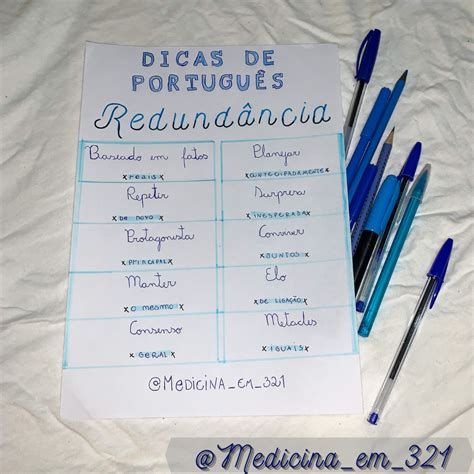 DICAS DE
PORTUGUÊS
Redundância
Baseado em fatos
x REAIS x
Planejar
x ANTECIPADAMENTE x
Repetir
x DE NOVO x
Surpresa
x INESPERADA x
Protagonista
x PRINCIPAL x
Conviver
x JUNTOS x
Manter
x O MESMO x
Elo
x DE LIGAÇÃO x
Consenso
x GERAL x
Metades
x IGUAIS x
@MEDICINA_EM_321
@Medicina_em_321